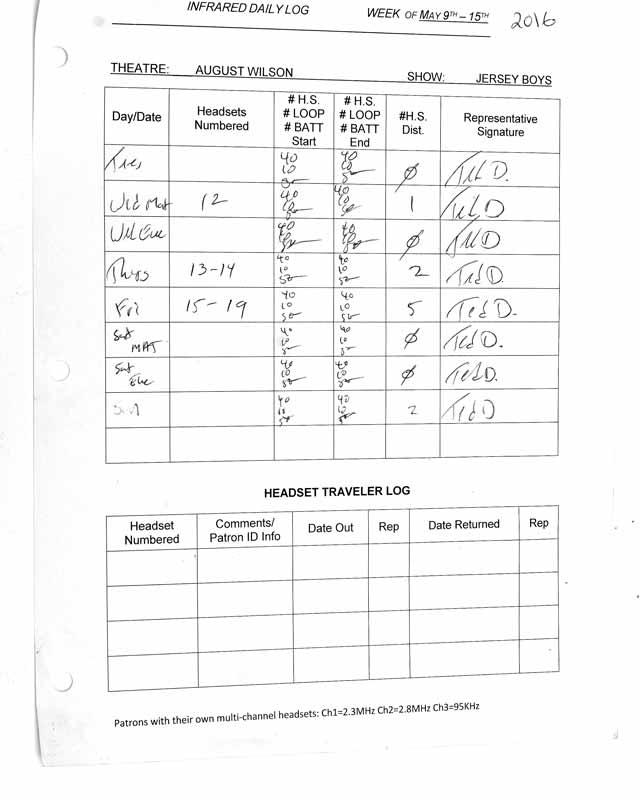 INFRARED DAILY LOG WEEK OF MAY 9TH – 15TH 2016
THEATRE: AUGUST WILSON SHOW: JERSEY BOYS
Day/Date Headsets Numbered # H.S. # LOOP # BATT Start # H.S. # LOOP # BATT End #H.S. Dist. Representative Signature
Tues 40 10 50 40 10 50 Ø Ted D.
Wed Mat 12 40 10 50 40 10 50 1 Ted D
Wed Eve 40 10 50 40 10 50 Ø Ted D
Thurs 13-14 40 10 50 40 10 50 2 Ted D.
Fri 15-19 40 10 50 40 10 50 5 Ted D.
Sat MAT 40 10 50 40 10 50 Ø Ted D.
Sat Eve 40 10 50 40 10 50 Ø Ted D.
Sun 40 10 50 40 10 50 2 Ted D
HEADSET TRAVELER LOG
Headset Numbered Comments/ Patron ID Info Date Out Rep Date Returned Rep
Patrons with their own multi-channel headsets: Ch1=2.3MHz Ch2=2.8MHz Ch3=95KHz